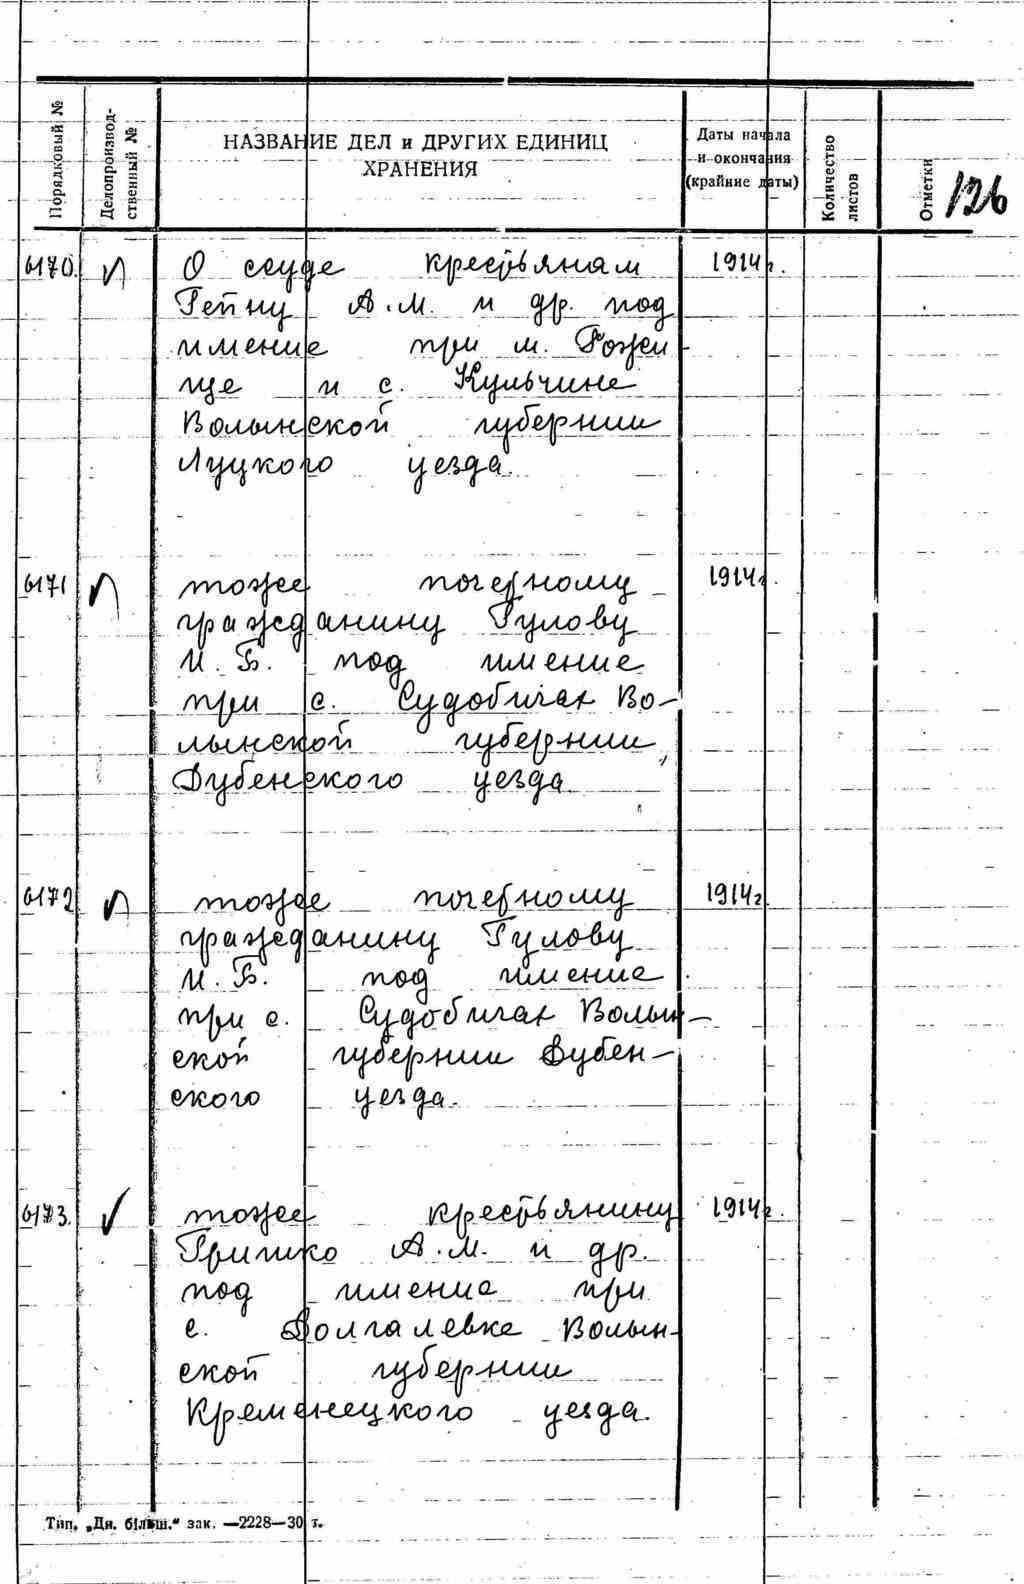 Порядковый №
Делопроизвод-
ственный №
НАЗВАНИЕ ДЕЛ и ДРУГИХ ЕДИНИЦ
ХРАНЕНИЯ
Даты начала
и окончания
(крайние даты)
Количество
листов
Отметки
126
6170.
О ссуде крестьянам
1914 г.
Гепну А.М. и др. под
имение при м. Рожи-
ще и с. Кульчине
Волынской губернии
Луцкого уезда.
6171
тоже почетному
1914 г.
гражданину Гулову
И. Б. под имение
при с. Судобичах Во-
лынской губернии,
Дубенского уезда
6172
тоже почетному
1914 г.
гражданину Гулову
И. Б. под имение
при с. Судобичах Волын-
ской губернии Дубен-
ского уезда.
6173.
тоже крестьянину
1914 г.
Гришко А.М. и др.
под имение при
с. Долгалевке Волын-
ской губернии
Кременецкого уезда.
Тип. „Дн. більш.“ зак. —2228—30 т.